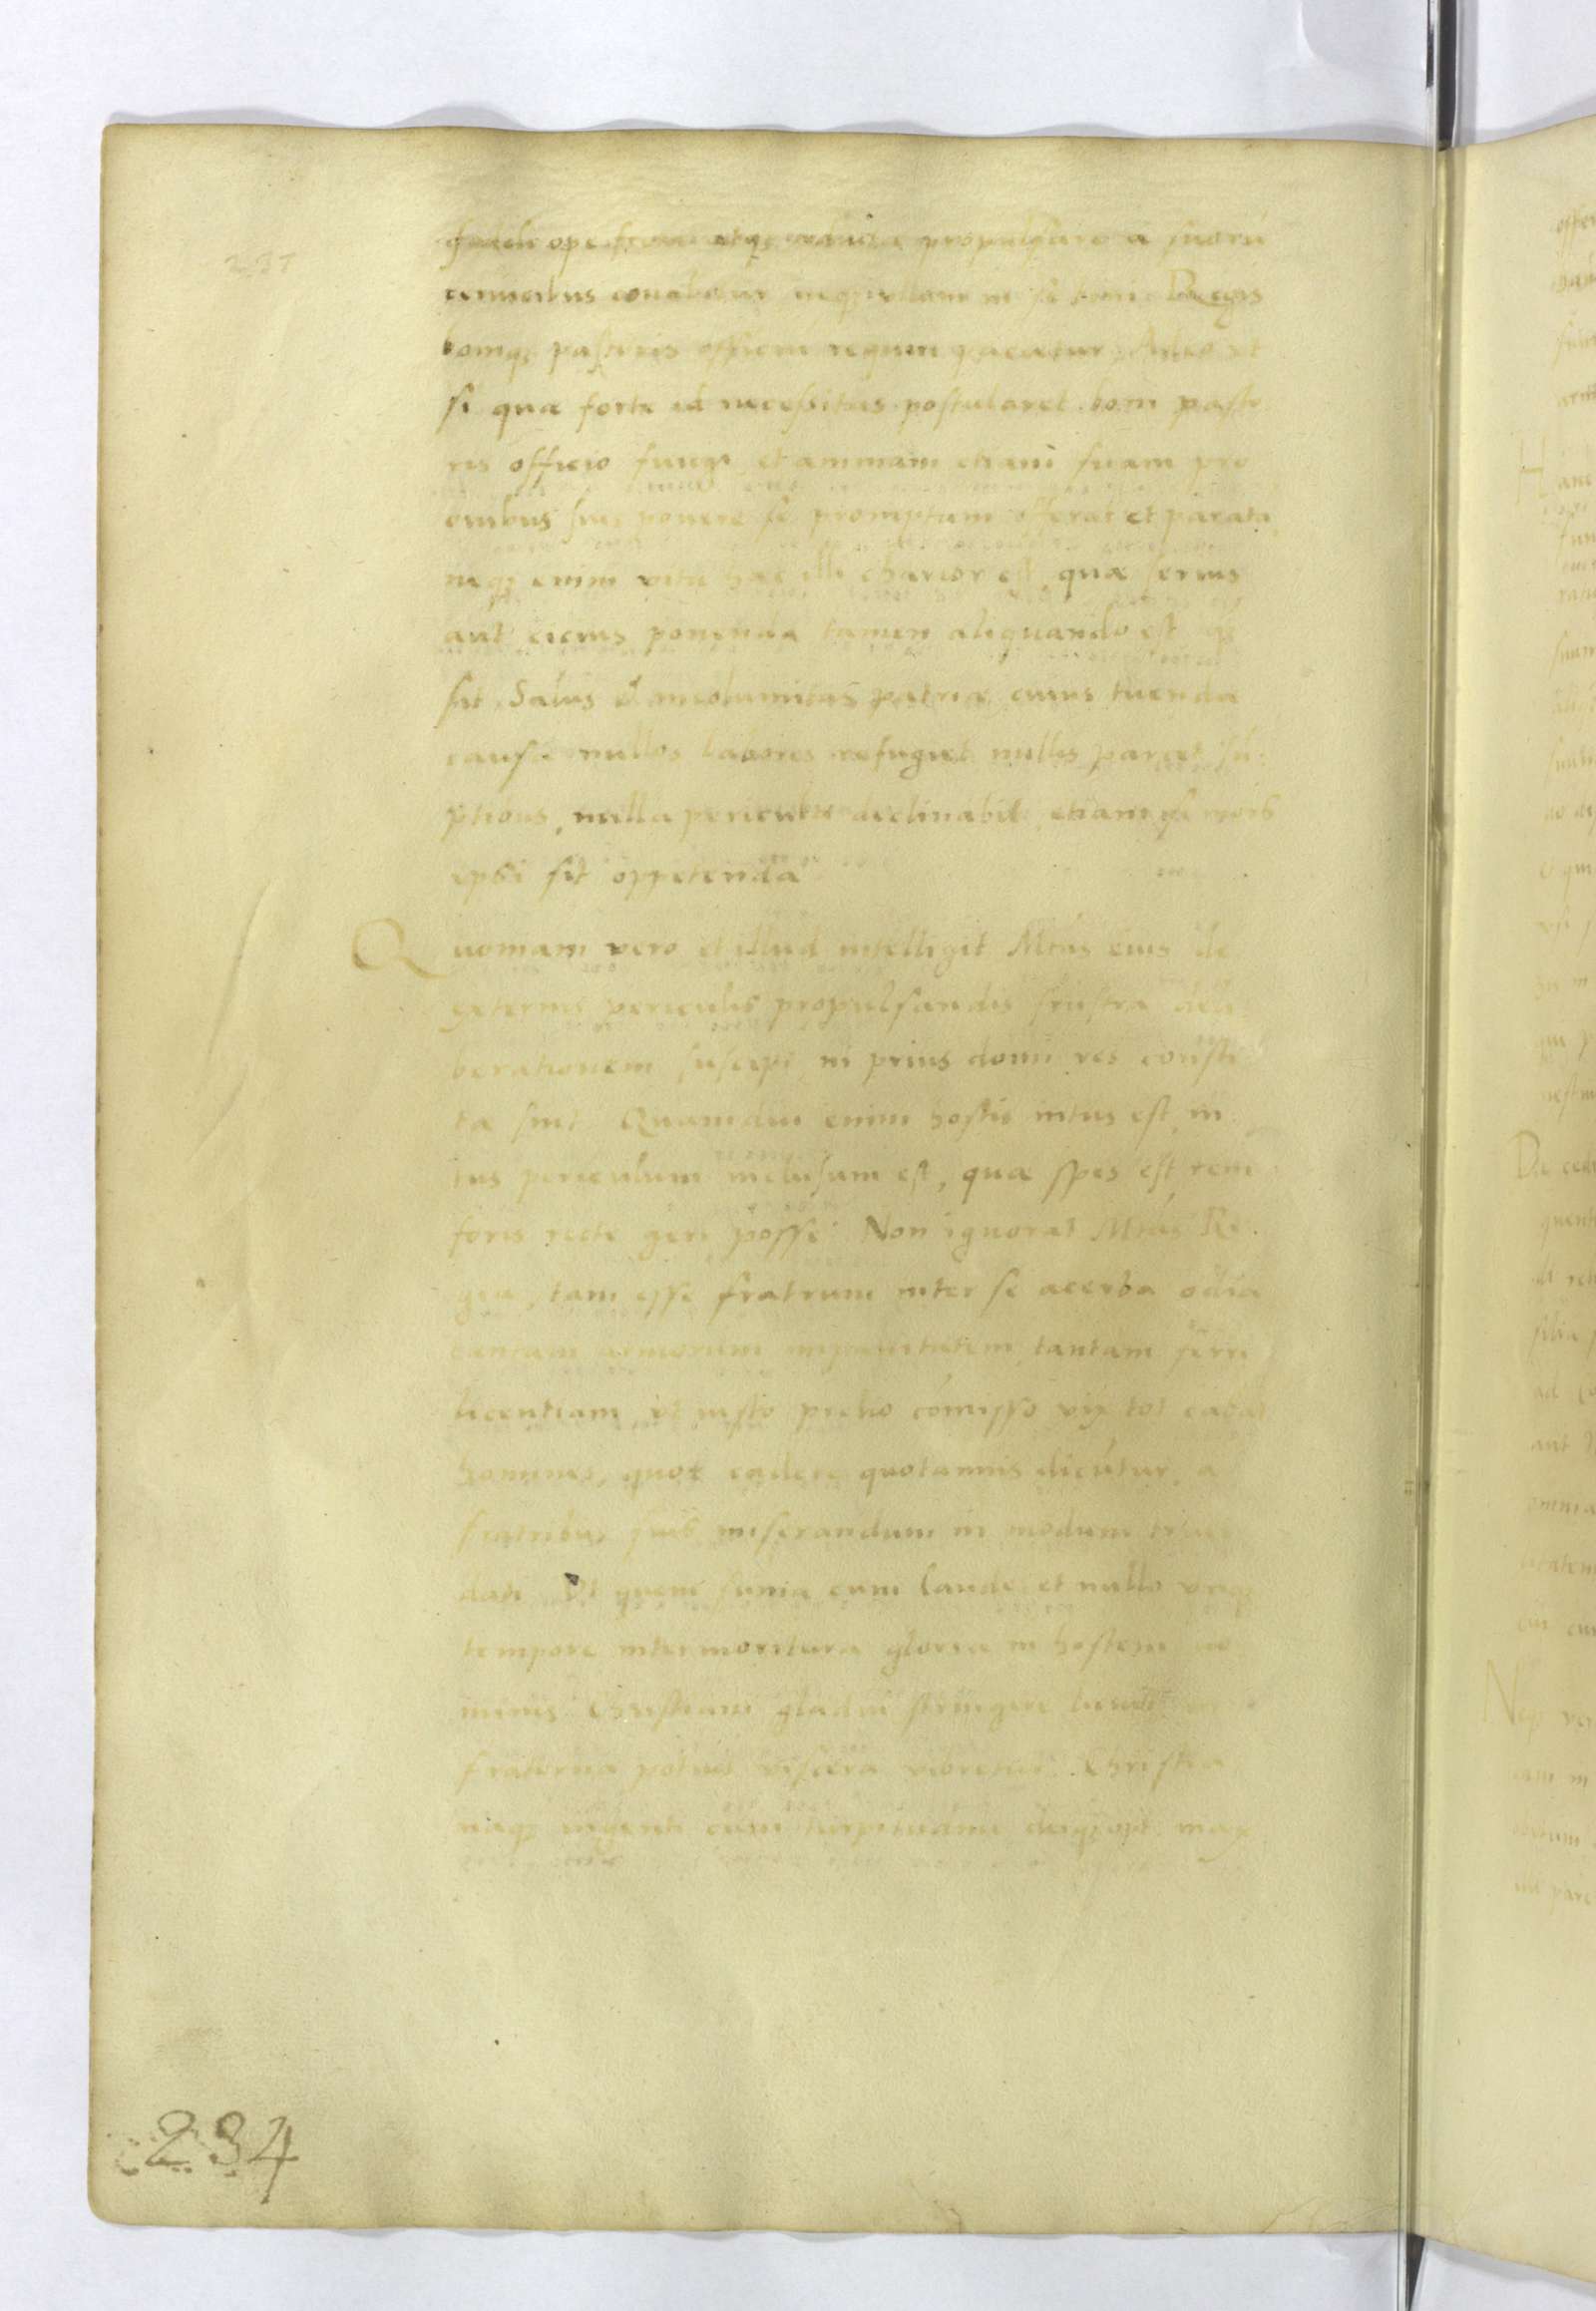 237
fideli ope atq; propulsare a suorũ
cervicibus conabatur in se boni Regis
boniq; pastoris officiu requiri Adeo ut
si quæ forte id necessitas postularet boni pasto
ris officio fungi et animam etiam suam pro
ovibus suis ponere se promptum offerat et paratũ
neq; enim vita hæc illi charior est quæ serius
aut cicius ponenda tamen aliquando est q;
sit Salus & incolumitas patriæ cuius tuenda
causa nullos labores refugiet nullis parcet sũ
ptibus, nulla pericula declinabit, etiam si mors
ipsi sit oppetenda
Quoniam vero et illud intelligit Mtas eius de
externis periculis propulsandis frustra deli
berationem suscipi ni prius domi res consti
tæ sint Quamdiu enim hostis intus est in
tus periculum inclusum est, quæ spes est rem
foris recte geri posse Non ignorat Mtas Re
gia, tam esse fratrum inter se acerba odia
tantam armorum impunitatem, tantam ferri
licentiam ut iusto prelio comisso vix tot cadat
homines, quot cadere quotannis dicũtur, a
fratribus suis miserandum in modum truci
dati Et quem sum̃a cum laude et nullo unq;
tempore intermoritura gloria in hostem no
minis Christiani gladiũ stringere
fraterna potius viscera Christia
niq; ingenti cum deiq; opt max
234